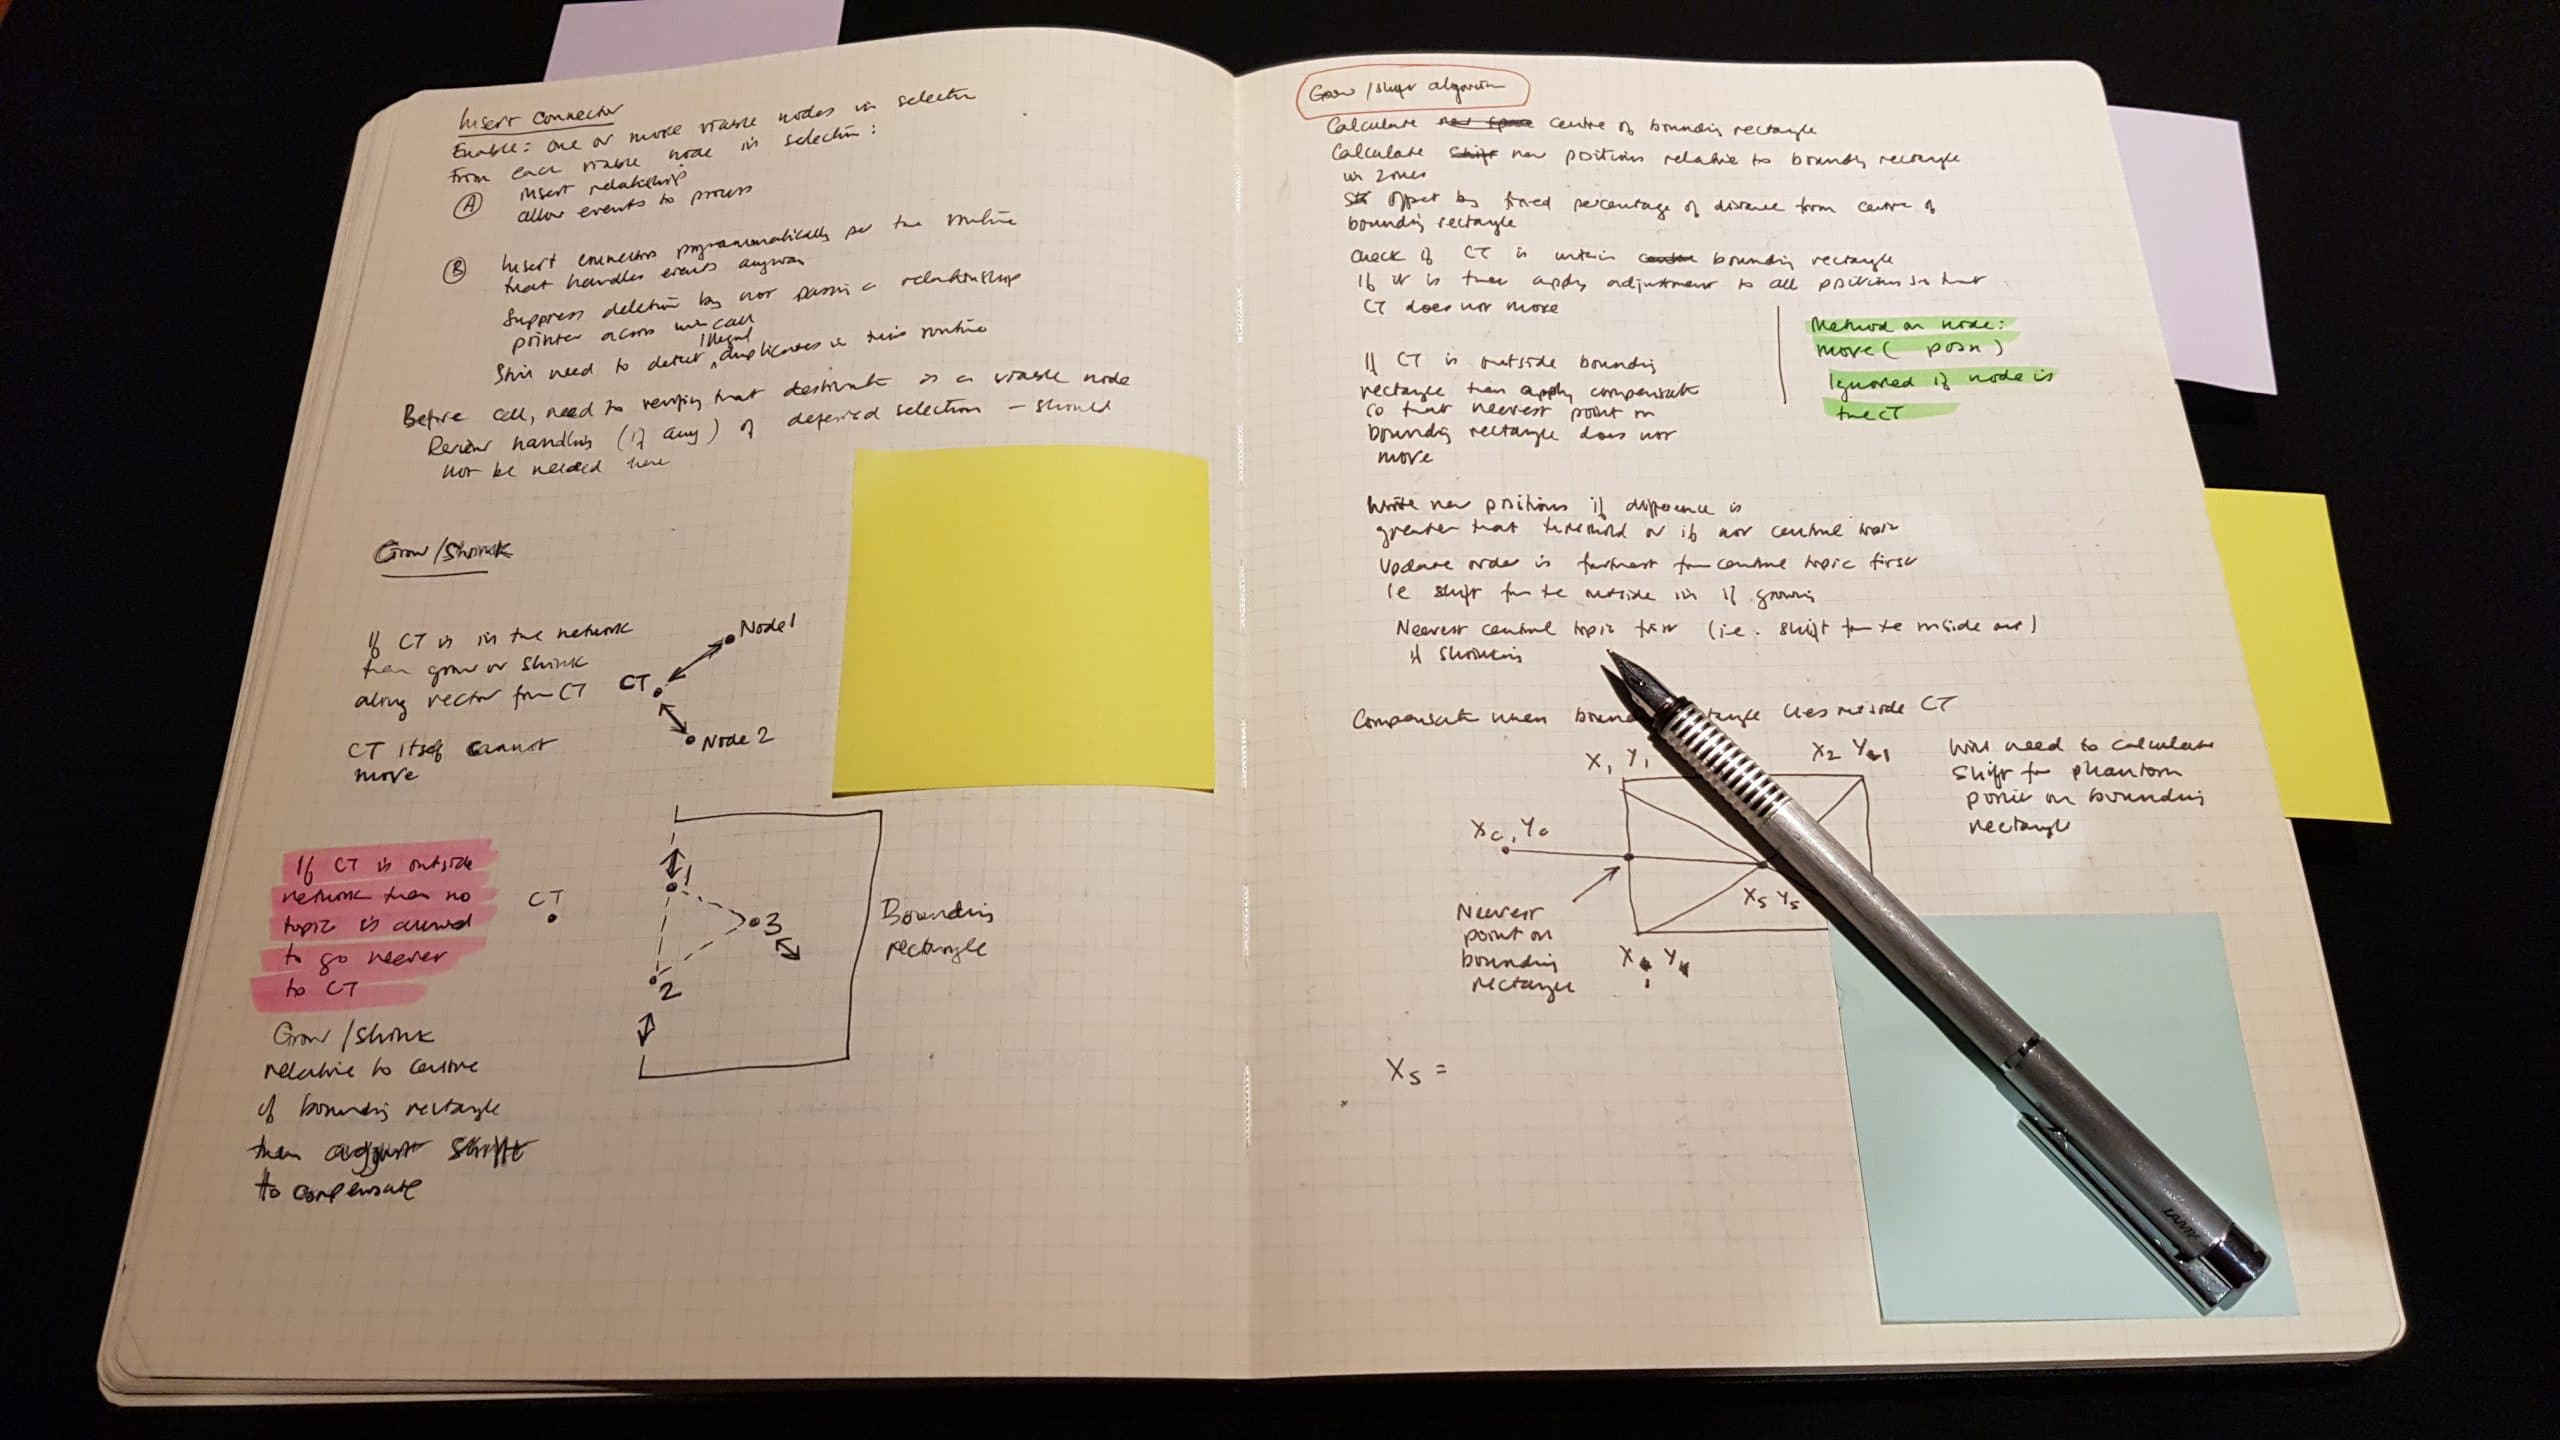 Insert Connector
Enable: One or more viable nodes in selection
From each viable node in selection:
A insert relationship
allow events to process
B Insert connectors programmatically per the routine
that handles events anyway
Suppress deletion by not passing a relationship
pointer across in call
Illegal
Still need to detect duplicates in this routine
Before call, need to verify that destination is a viable node
Review handling (if any) of deferred selection - should
not be needed here
Grow/Shrink
If CT is in the network
then grow or shrink
along vector from CT
CT itself cannot
move
Node 1
CT
Node 2
If CT is outside
network then no
topic is allowed
to go nearer
to CT
CT
1
3
2
Bounding
rectangle
Grow/Shrink
relative to centre
of bounding rectangle
then adjust shift
to compensate
Grow/shift algorithm
Calculate new space centre of bounding rectangle
Calculate shift new positions relative to bounding rectangle
in zones
offset by fixed percentage of distance from centre of
bounding rectangle
Check if CT is within centre bounding rectangle
If it is then apply adjustment to all positions so that
CT does not move
If CT is outside bounding
rectangle then apply compensate
so that nearest point on
bounding rectangle does not
move
Method on node:
move( posn )
Ignored if node is
the CT
Write new positions if difference is
greater that threshold or if not central topic
Update order is furthest from central topic first
ie shift from the outside in if growing
Nearest central topic first (i.e. shift from the inside out)
if shrinking
Compensate when bounding rectangle lies outside CT
X1 Y1
X2 Y1
Will need to calculate
shift for phantom
point on bounding
rectangle
Xc, Yc
X5 Y5
Nearest
point on
bounding
rectangle
X Y
X5 =
LAMY